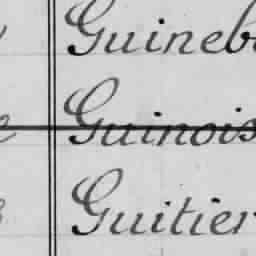 Guineb
Guinois
Guitier